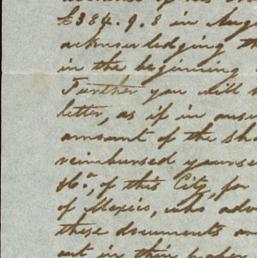 £384.9.8 in Aug
acknowledging th
in the beginning
Further you will
letter, as if in
amount of the sha
reimbursed yourse
of this City, for
of Mexico, who adv
these documents an
out in their